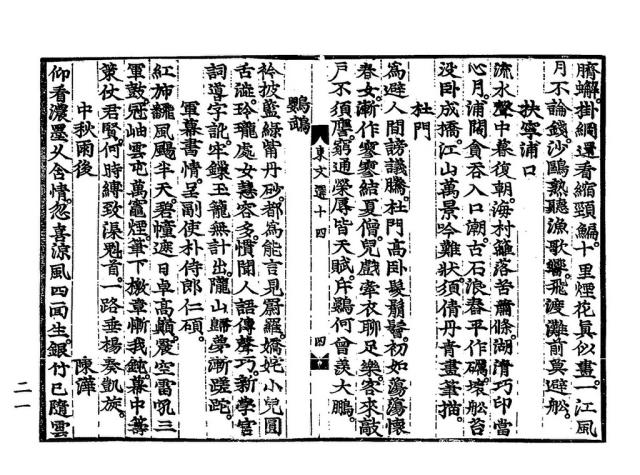 臍蟹。掛網還看縮頸鯿。十里煙花眞似畫。一江風
月不論錢。沙鷗熟聽漁歌響。飛渡灘前莫避船。
扶寧浦口
流水聲中暮復朝。海村籬落苦蕭條。湖淸巧印當
心月。浦闊貪呑入口潮。古石浪舂平作礪。壞舩苔
没臥成橋。江山萬景吟難狀。須倩丹青畫筆描。
杜門
爲避人間謗議騰。杜門高臥髮鬅鬙。初如蕩蕩懷
春女。漸作寥寥結夏僧。兒戲牽衣聊足樂。客來敲
戶不須譍。窮通榮辱皆天賦。斥鷃何曾羨大鵬。
東文選十四 四
鸚鵡
衿披藍綠觜丹砂。都爲能言見罻羅。嬌姹小兒圓
舌澁。玲瓏處女慧容多。慣聞人語傳聲巧。新學宮
詞導字訛。牢鏁玉籠無計出。隴山歸夢漸蹉跎。
軍幕書情。呈副使朴侍郎仁碩。
紅旆飜風颺半天。碧幢遮日卓高巓。震空雷吼三
軍鼓。冠岫雲屯萬竈煙。筆下檄章慚我鈍。幕中籌
策仗君賢。何時縛致渠魁首。一路垂楊奏凱旋。
中秋雨後 陳澕
仰看濃墨久含情。忽喜凉風四面生。銀竹已隨雲
二一